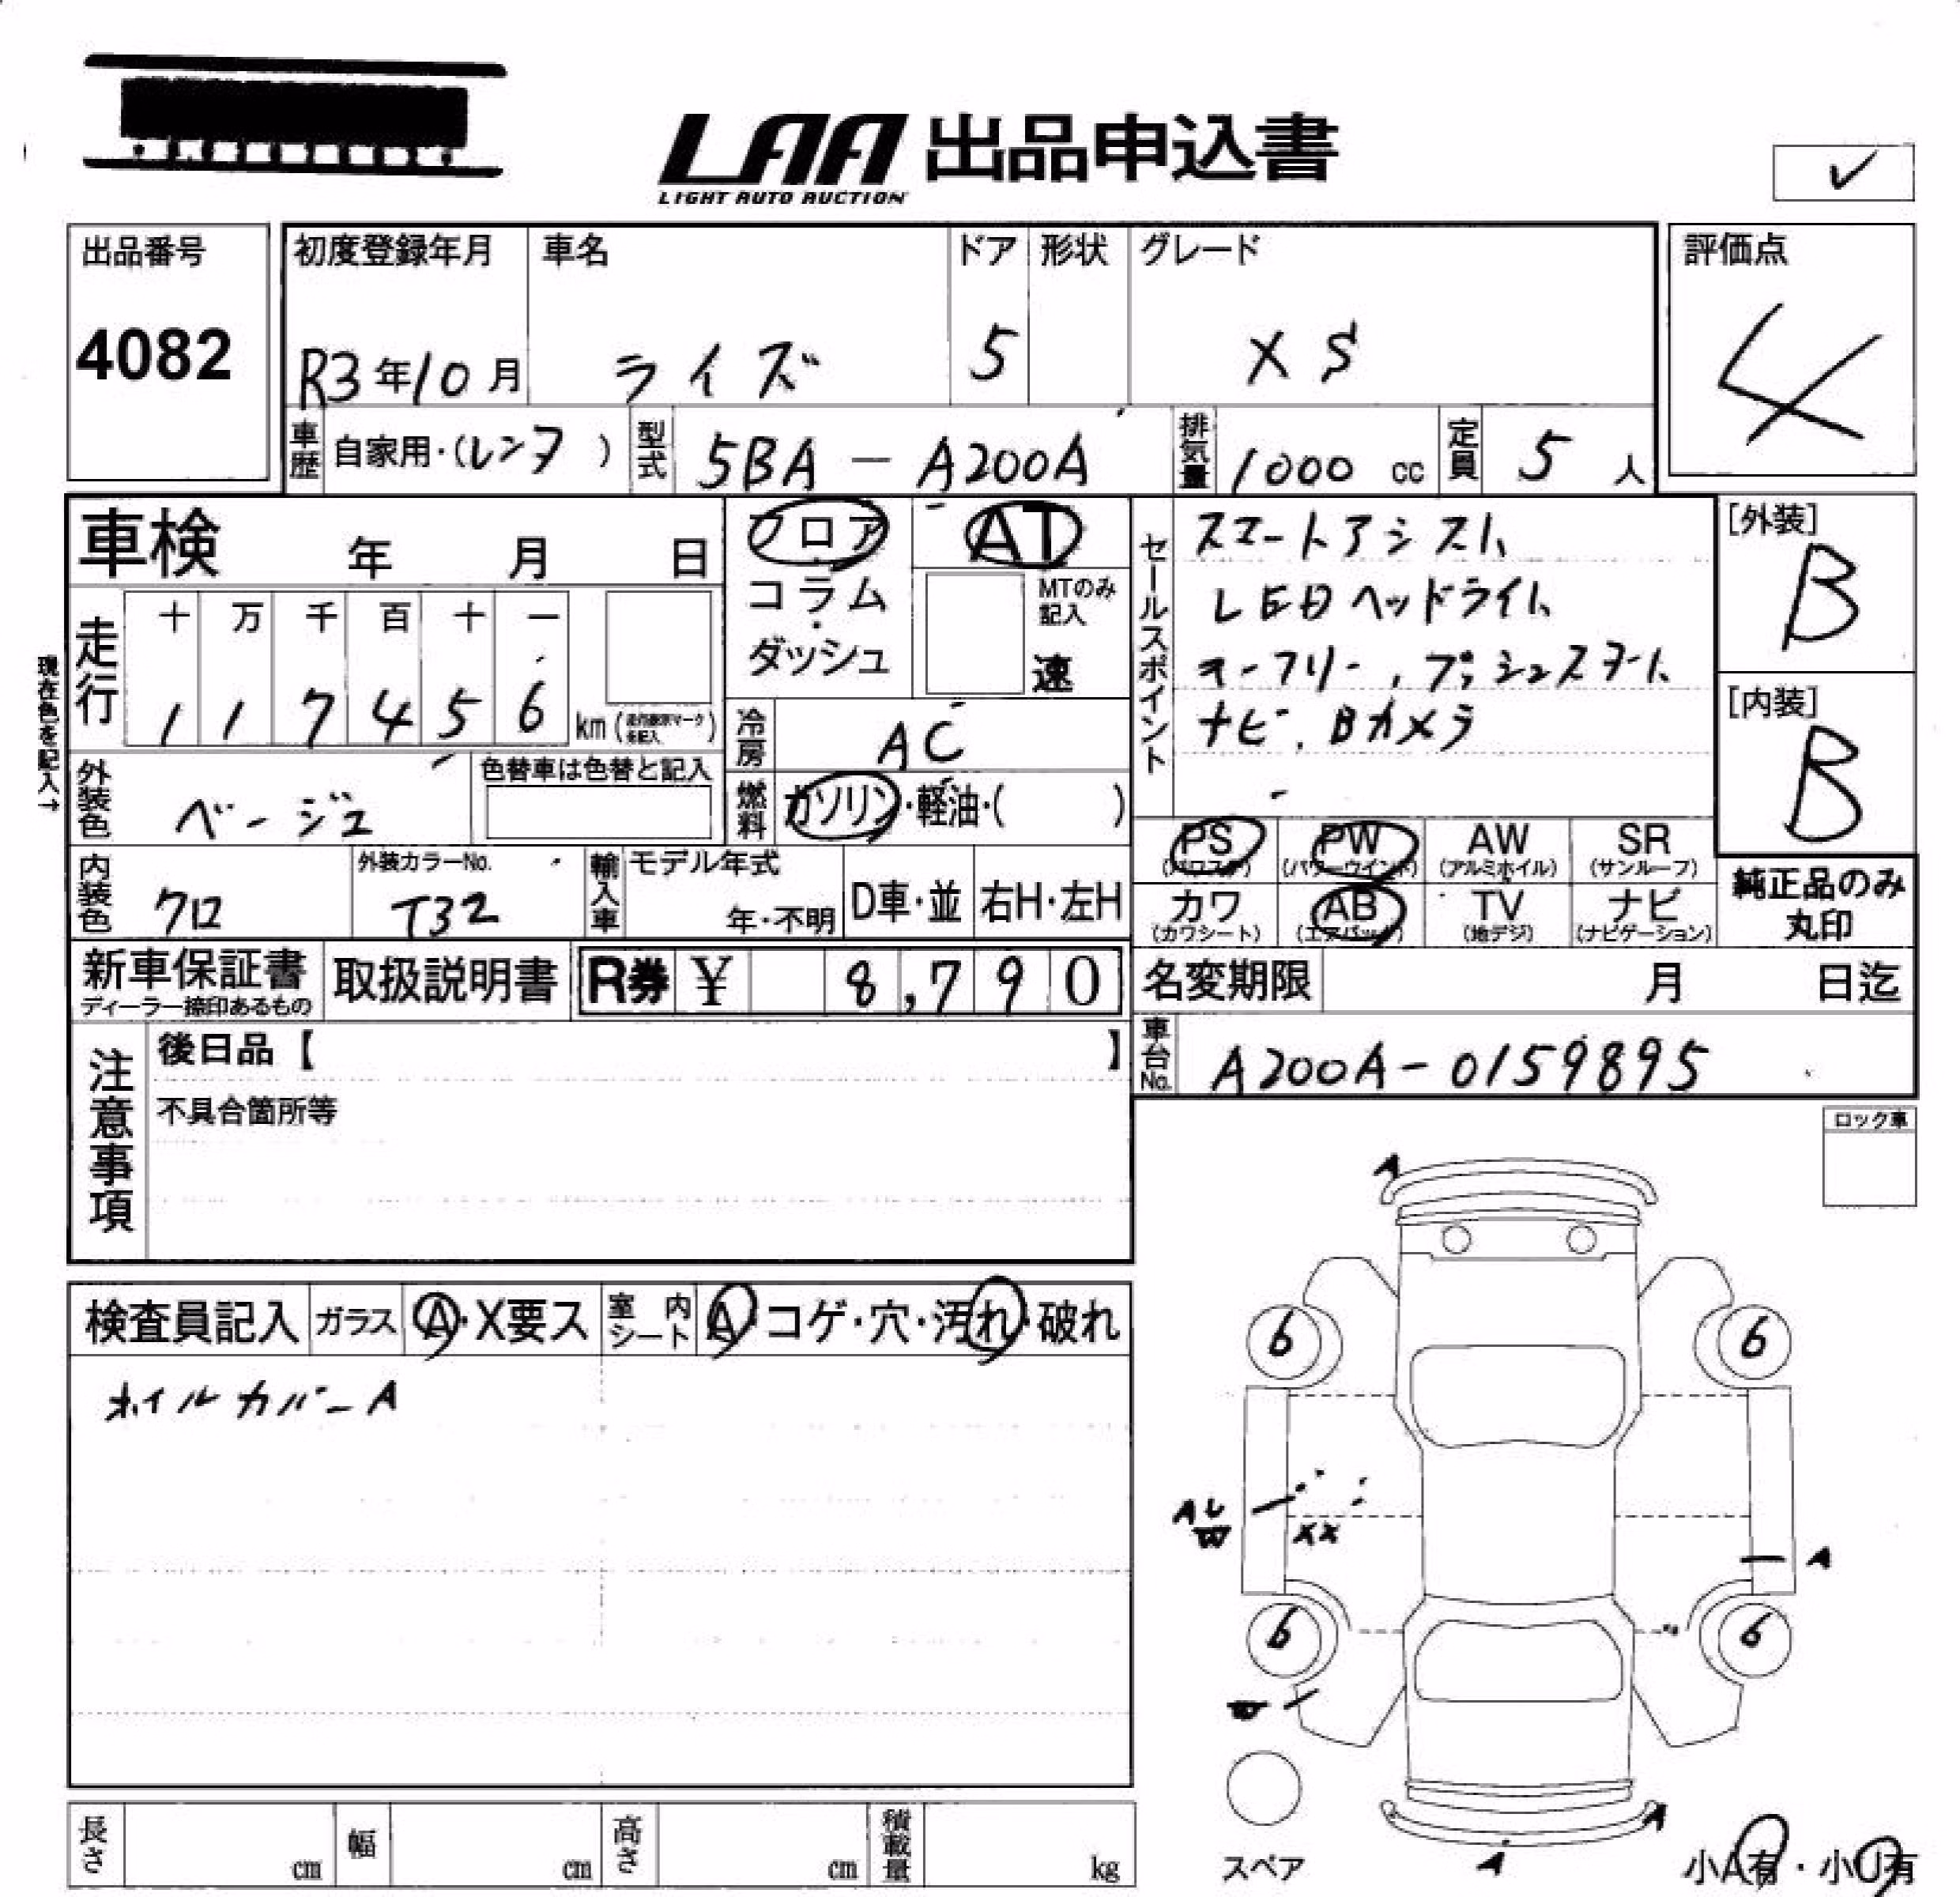 LAA 出品申込書
LIGHT AUTO AUCTION
✓
出品番号
4082
初度登録年月
R3年10月
車名
ライズ
ドア
5
形状
グレード
XS
評価点
4
車歴
自家用・(レンタ )
型式
5BA-A200A
排気量
1000 cc
定員
5 人
車検 年 月 日
フロア・コラム・ダッシュ
AT
MTのみ記入
速
セールスポイント
スマートアシスト
LEDヘッドライト
キーフリー、プッシュスタート
ナビ、Bカメラ
[外装]
B
[内装]
B
現在色を記入→
走行
十 万 千 百 十 一
1 1 7 4 5 6 km
冷房
AC
燃料
ガソリン・軽油・( )
外装色
ベージュ
色替車は色替と記入
内装色
クロ
外装カラーNo.
T32
輸入車
モデル年式
年・不明
D車・並
右H・左H
PS (パワステ)
PW (パワーウインド)
AW (アルミホイル)
SR (サンルーフ)
カワ (カワシート)
AB (エアバッグ)
TV (地デジ)
ナビ (ナビゲーション)
純正品のみ
丸印
新車保証書
ディーラー捺印あるもの
取扱説明書
R券 ¥ 8,790
名変期限 月 日迄
車台No.
A200A-0159895
注意事項
後日品【 】
不具合箇所等
ロック車
検査員記入
ガラス A・X要ス
室内シート A・コゲ・穴・汚れ・破れ
ホイルカバーA
A
6 6
AU
W
XX
A
6 6
W
A
A
スペア
小A有・小U有
長さ cm
幅 cm
高さ cm
積載量 kg